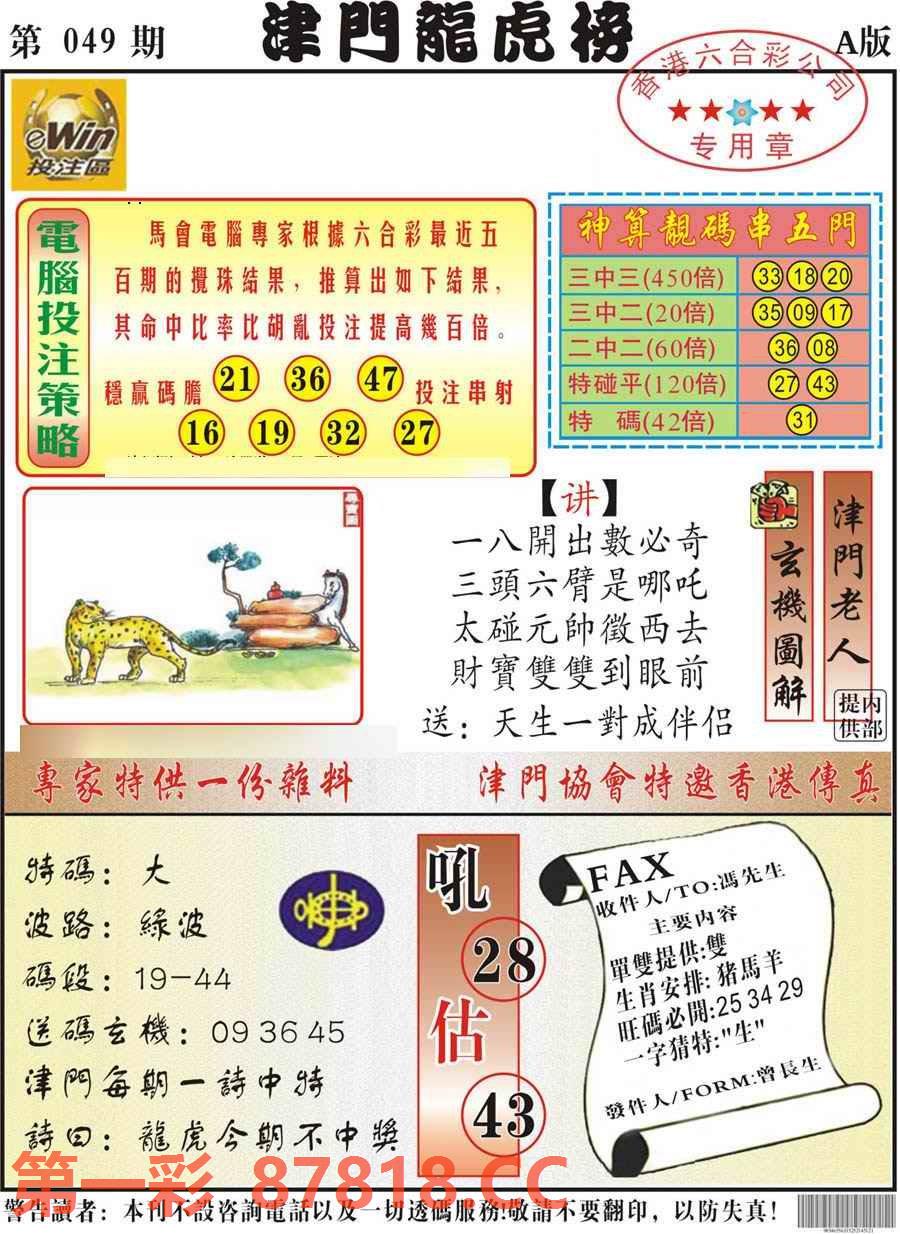 第 049 期
津門龍虎榜
A版
香港六合彩公司
专用章
eWin
投注區
電腦投注策略
馬會電腦專家根據六合彩最近五
百期的攪珠結果，推算出如下結果，
其命中比率比胡亂投注提高幾百倍。
穩贏碼膽 21 36 47 投注串射
16 19 32 27
神算靚碼串五門
三中三(450倍) 33 18 20
三中二(20倍) 35 09 17
二中二(60倍) 36 08
特碰平(120倍) 27 43
特 碼(42倍) 31
【讲】
一八開出數必奇
三頭六臂是哪吒
太碰元帥徵西去
財寶雙雙到眼前
送：天生一對成伴侣
玄機圖解
津門老人
内部提供
專家特供一份雜料
津門協會特邀香港傳真
特碼：大
波路：綠波
碼段：19-44
送碼玄機：09 36 45
津門每期一詩中特
詩曰：龍虎今期不中獎
吼
28
估
43
FAX
收件人/TO:馮先生
主要内容
單雙提供:雙
生肖安排:猪馬羊
旺碼必開:25 34 29
一字猜特:"生"
發件人/FORM:曾長生
第一彩 87818.CC
警告讀者：本刊不設咨詢電話以及一切透碼服務!敬請不要翻印，以防失真!